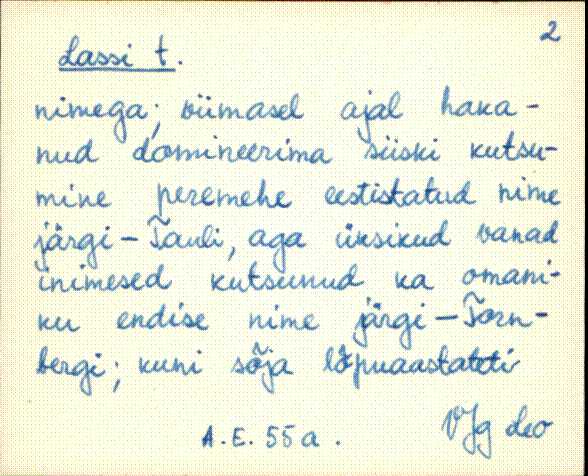 2
Lassi t.
nimega; viimasel ajal haka-
nud domineerima siiski kutsu-
mine peremehe eestistatud nime
järgi - Tauli, aga üksikud vanad
inimesed kutsunud ka omani-
ku endise nime järgi - Torn-
bergi; kuni sõja lõpuaastateti
VJg Leo
A.E. 55 a.